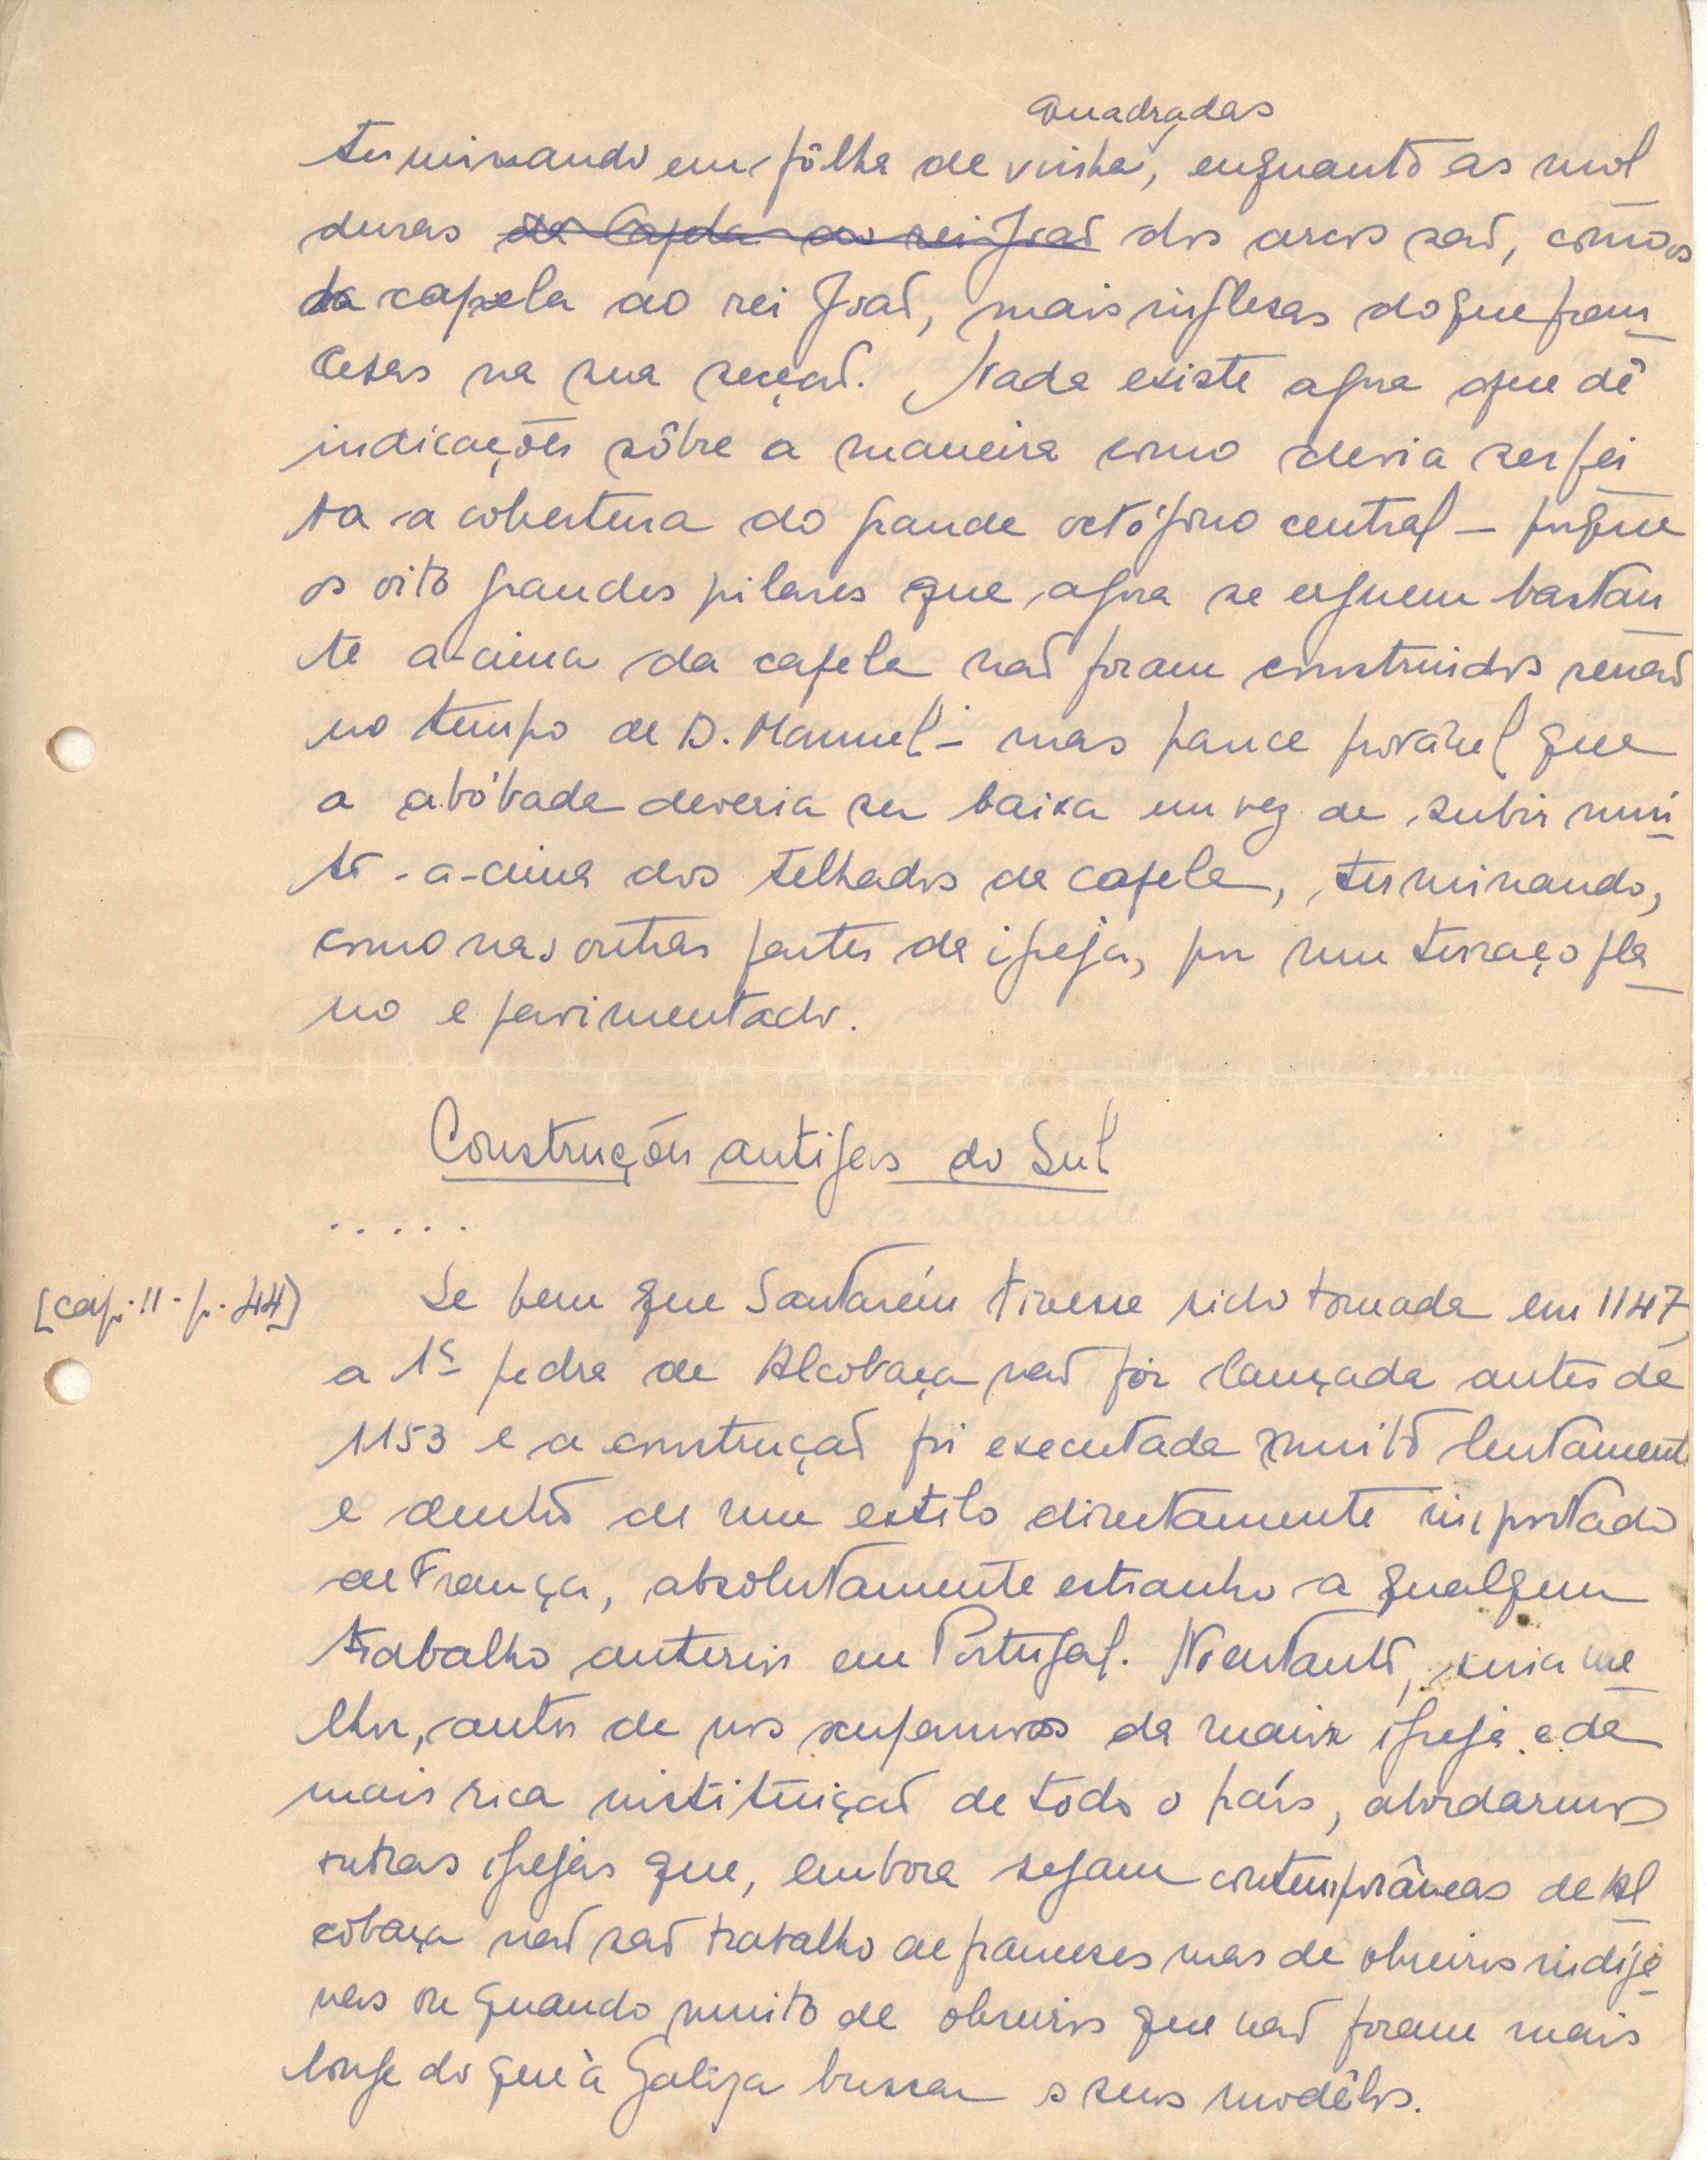 quadradas
terminando em fôlha de vinha, enquanto as mol
duras da Capela do rei João dos arcos são, como os
da capela do rei João, mais inglesas do que fran
cesas na sua secção. Nada existe agora que dê
indicações sôbre a maneira como devia ser fei
ta a cobertura do grande octógono central – porque
os oito grandes pilares que agora se erguem bastan
te a-cima da capela não foram construidos senão
no tempo de D. Manuel – mas parece provável que
a abóbada deveria ser baixa em vez de subir mui
to a-cima dos telhados da capela, terminando,
como nas outras partes da igreja, por um terraço pla
no e pavimentado.
Construções antigas do Sul
. . . . .
[cap. II - p. 44]
Se bem que Santarém tivesse sido tomada em 1147,
a 1ª pedra de Alcobaça não foi lançada antes de
1153 e a construção foi executada muito lentament
e dentro de um estilo directamente importado
de França, absolutamente estranho a qualquer
trabalho anterior em Portugal. No entanto, seria me
lhor, antes de nos ocuparmos da maior igreja e da
mais rica instituição de todo o país, abordarmos
outras igrejas que, embora sejam contemporâneas de Al
cobaça não são trabalho de franceses mas de obreiros indíge
nas ou quando muito de obreiros que não foram mais
longe do que à Galiza buscar os seus modêlos.